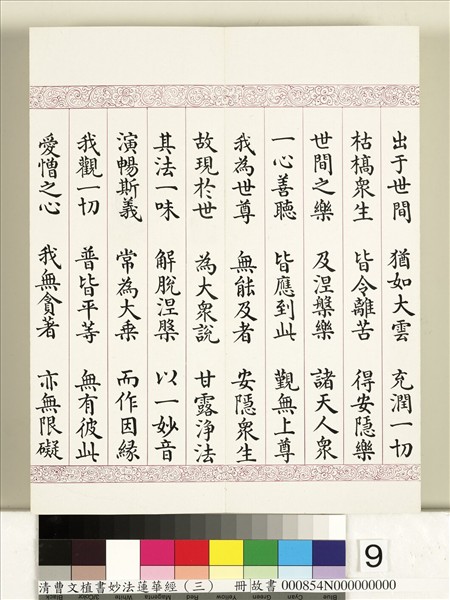 出于世間　猶如大雲　充潤一切
枯槁衆生　皆令離苦　得安隱樂
世間之樂　及涅槃樂　諸天人衆
一心善聽　皆應到此　覲無上尊
我為世尊　無能及者　安隱衆生
故現於世　為大衆說　甘露淨法
其法一味　解脫涅槃　以一妙音
演暢斯義　常為大乗　而作因縁
我觀一切　普皆平等　無有彼此
愛憎之心　我無貪著　亦無限礙
9
清曹文植書妙法蓮華經（三）　冊 故書 000854N000000000
Black White Magenta Red Yellow Green Cyan Blue